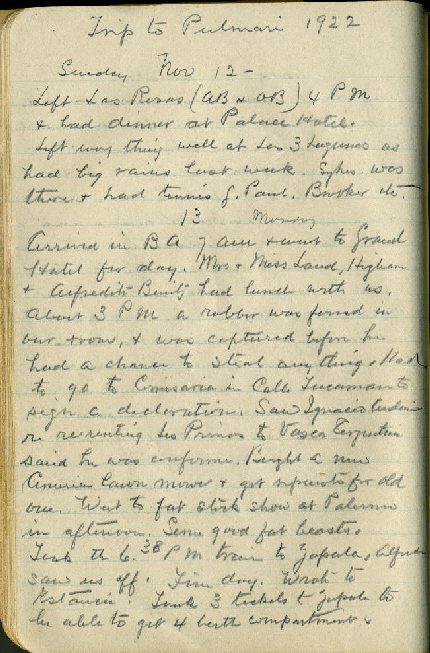 Trip to Pulmari 1922
Sunday Nov 12 -
Left Las Rosas (AB & OB) 4 P M
& had dinner at Palace Hotel.
Left everything well at Los 3 Lagunas as
had big rains last week. Sykes was
there & had tennis g. Paul, Booker etc.
13 Monday
Arrived in B A 7 am & went to Grand
Hotel for day. Mrs & Miss Land, Higham
& Alfredito Benitz had lunch with us.
About 3 P M a robber was found in
our room, & was captured before he
had a chance to steal anything. Had
to go to Comisaria in Calle Tucaman to
sign a decleration. Saw Ignacio
re rerenting Los Primos to Vasco
said he was conforme. Bought a new
American Lawn mower & got repuestos for old
one. Went to fat stock show at Palermo
in afternoon. Some good fat beasts.
Took the 6.38 P M train to Zapala, Alfredo
saw us off. Fine day. Wrote to
Estancia. Took 3 tickets to Zapala to
be able to get 4 berth compartment.